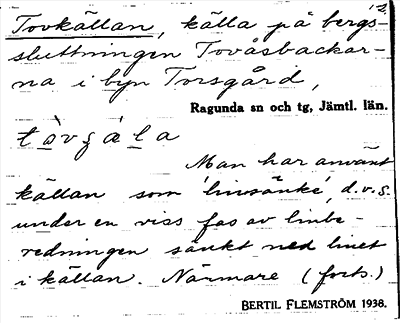 12.
Tovkällan, källa på bergs-
sluttningen Tovåsbackar-
na i byn Torsgård,
Ragunda sn och tg, Jämtl. län.
Man har använt
källan som 'linsänke', d.v.s.
under en viss fas av linbe-
redningen sänkt ned linet
i källan. Närmare (forts.)
BERTIL FLEMSTRÖM 1938.